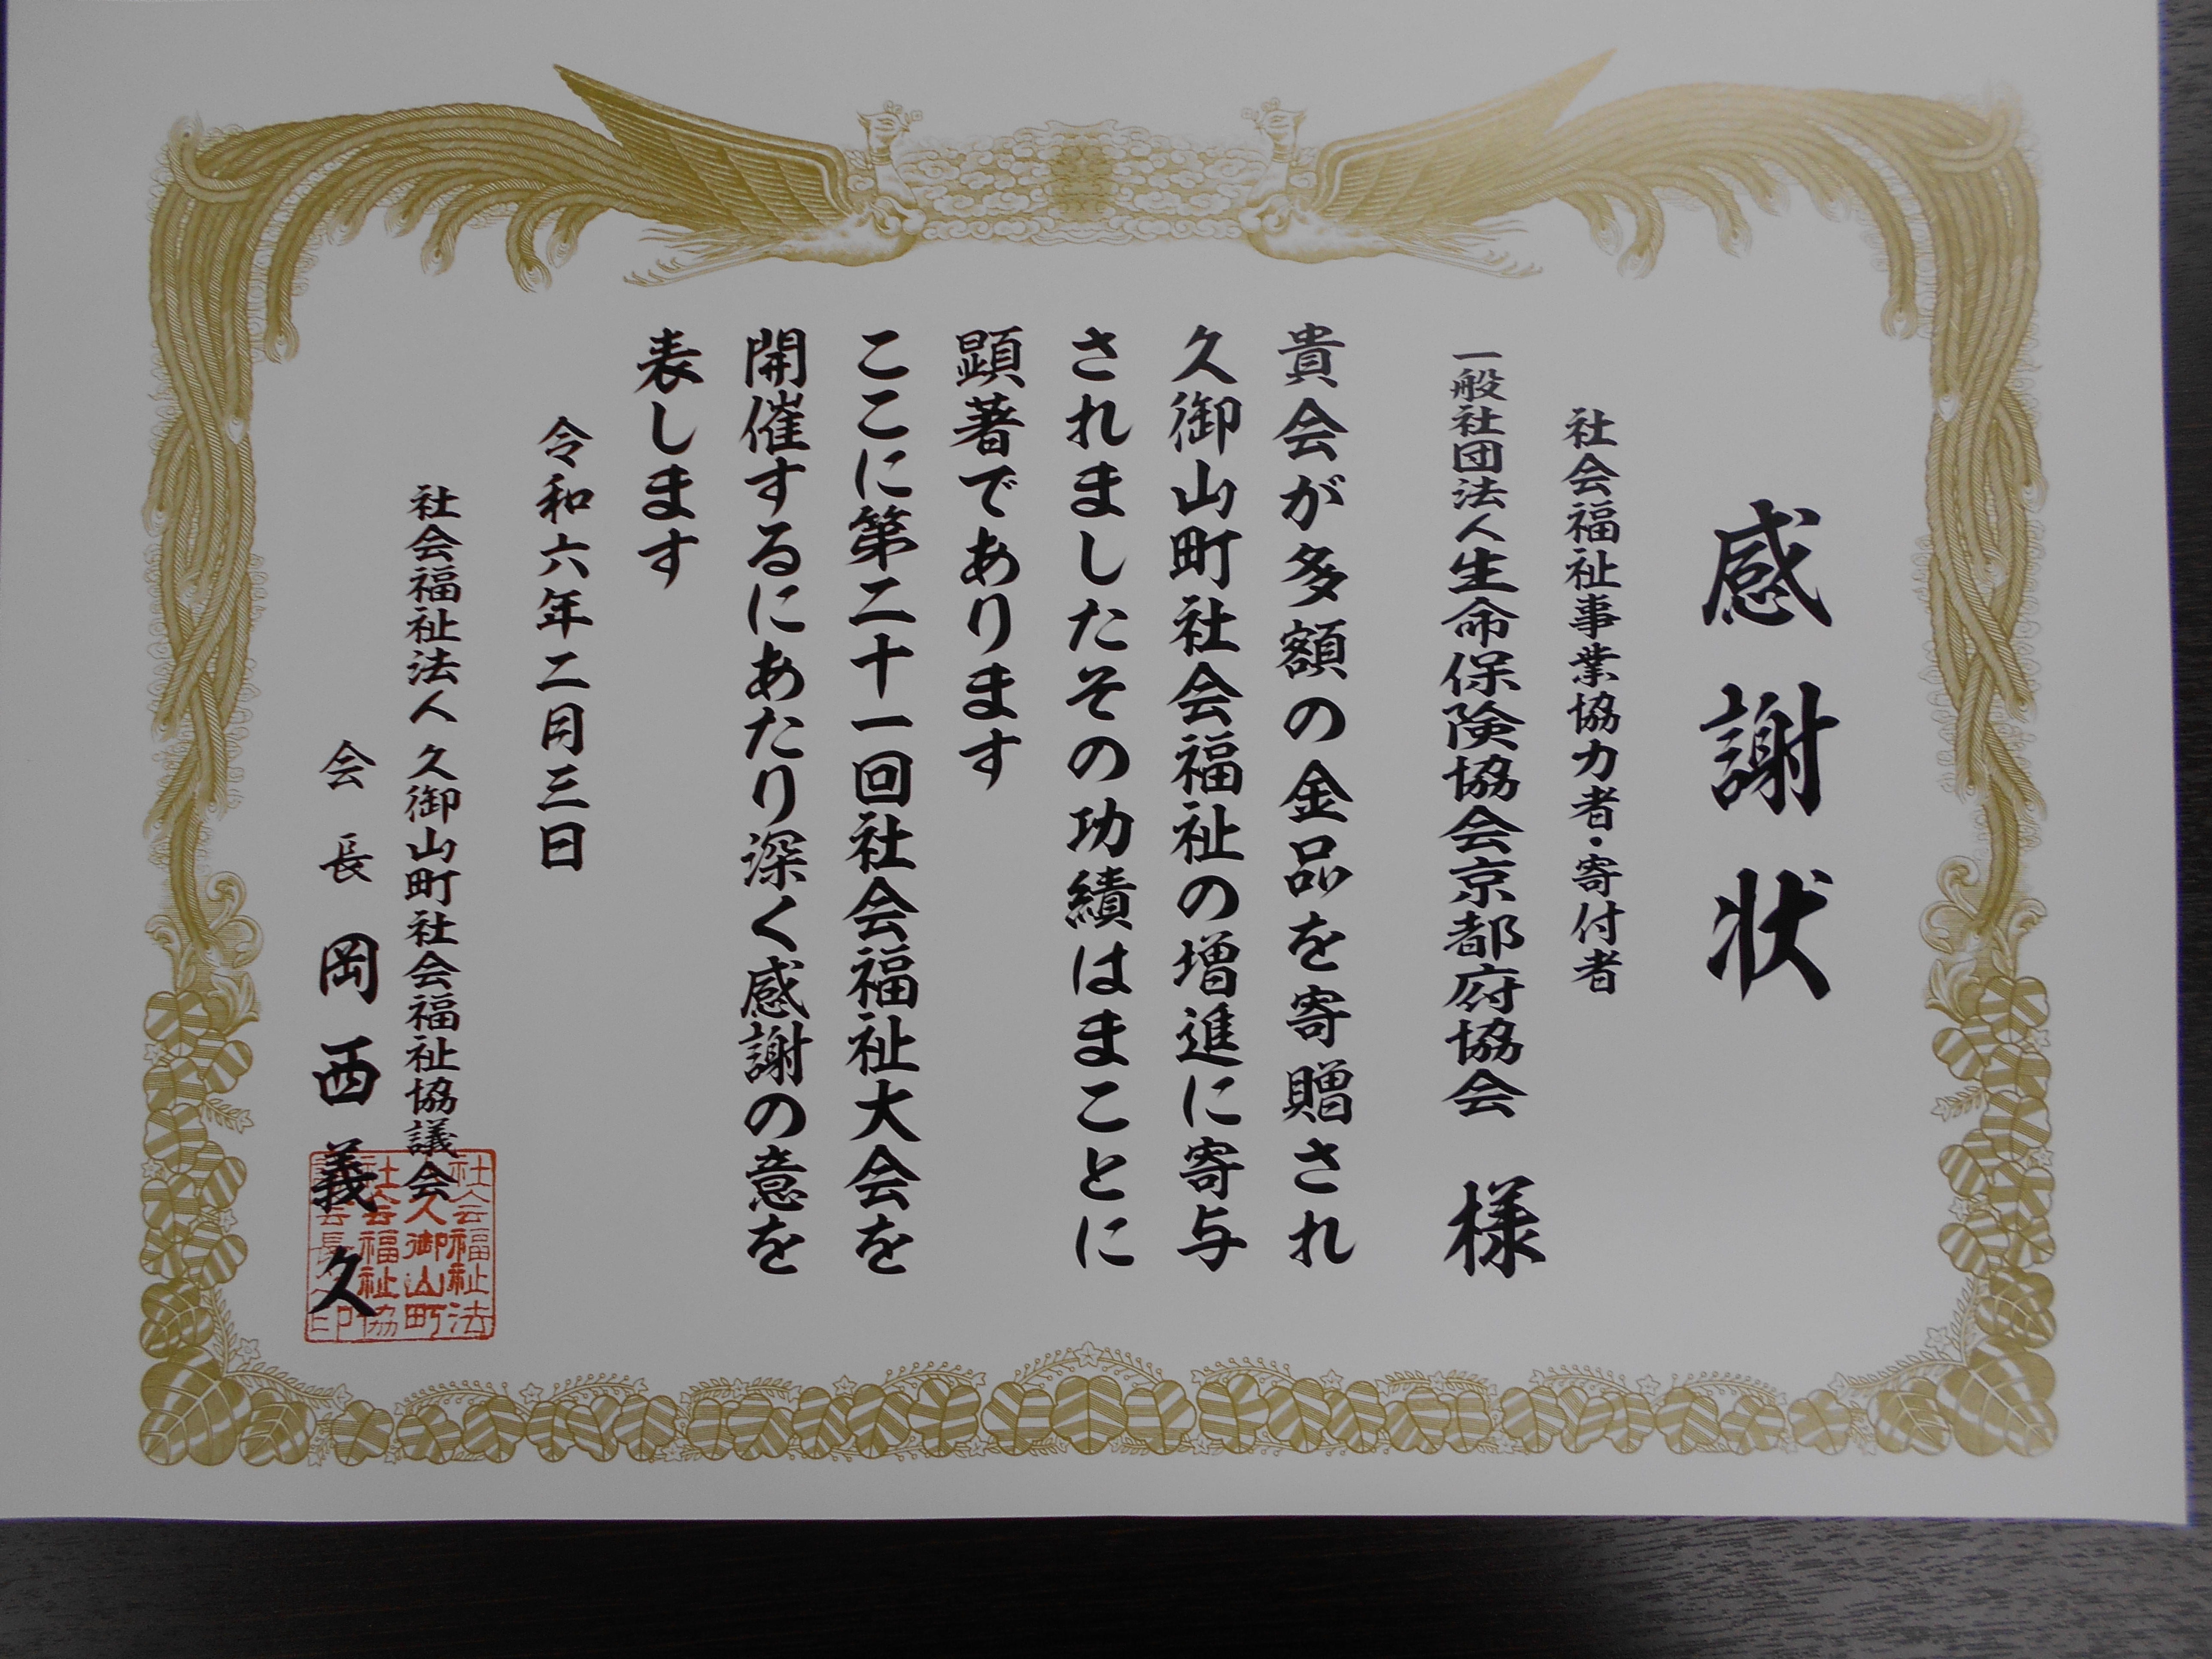 感謝状
社会福祉事業協力者・寄付者
一般社団法人生命保険協会京都府協会 様
貴会が多額の金品を寄贈され
久御山町社会福祉の増進に寄与
されましたその功績はまことに
顕著であります
ここに第二十一回社会福祉大会を
開催するにあたり深く感謝の意を
表します
令和六年二月三日
社会福祉法人 久御山町社会福祉協議会
会長 岡西義久
社会福祉法
久御山町
社会福祉協